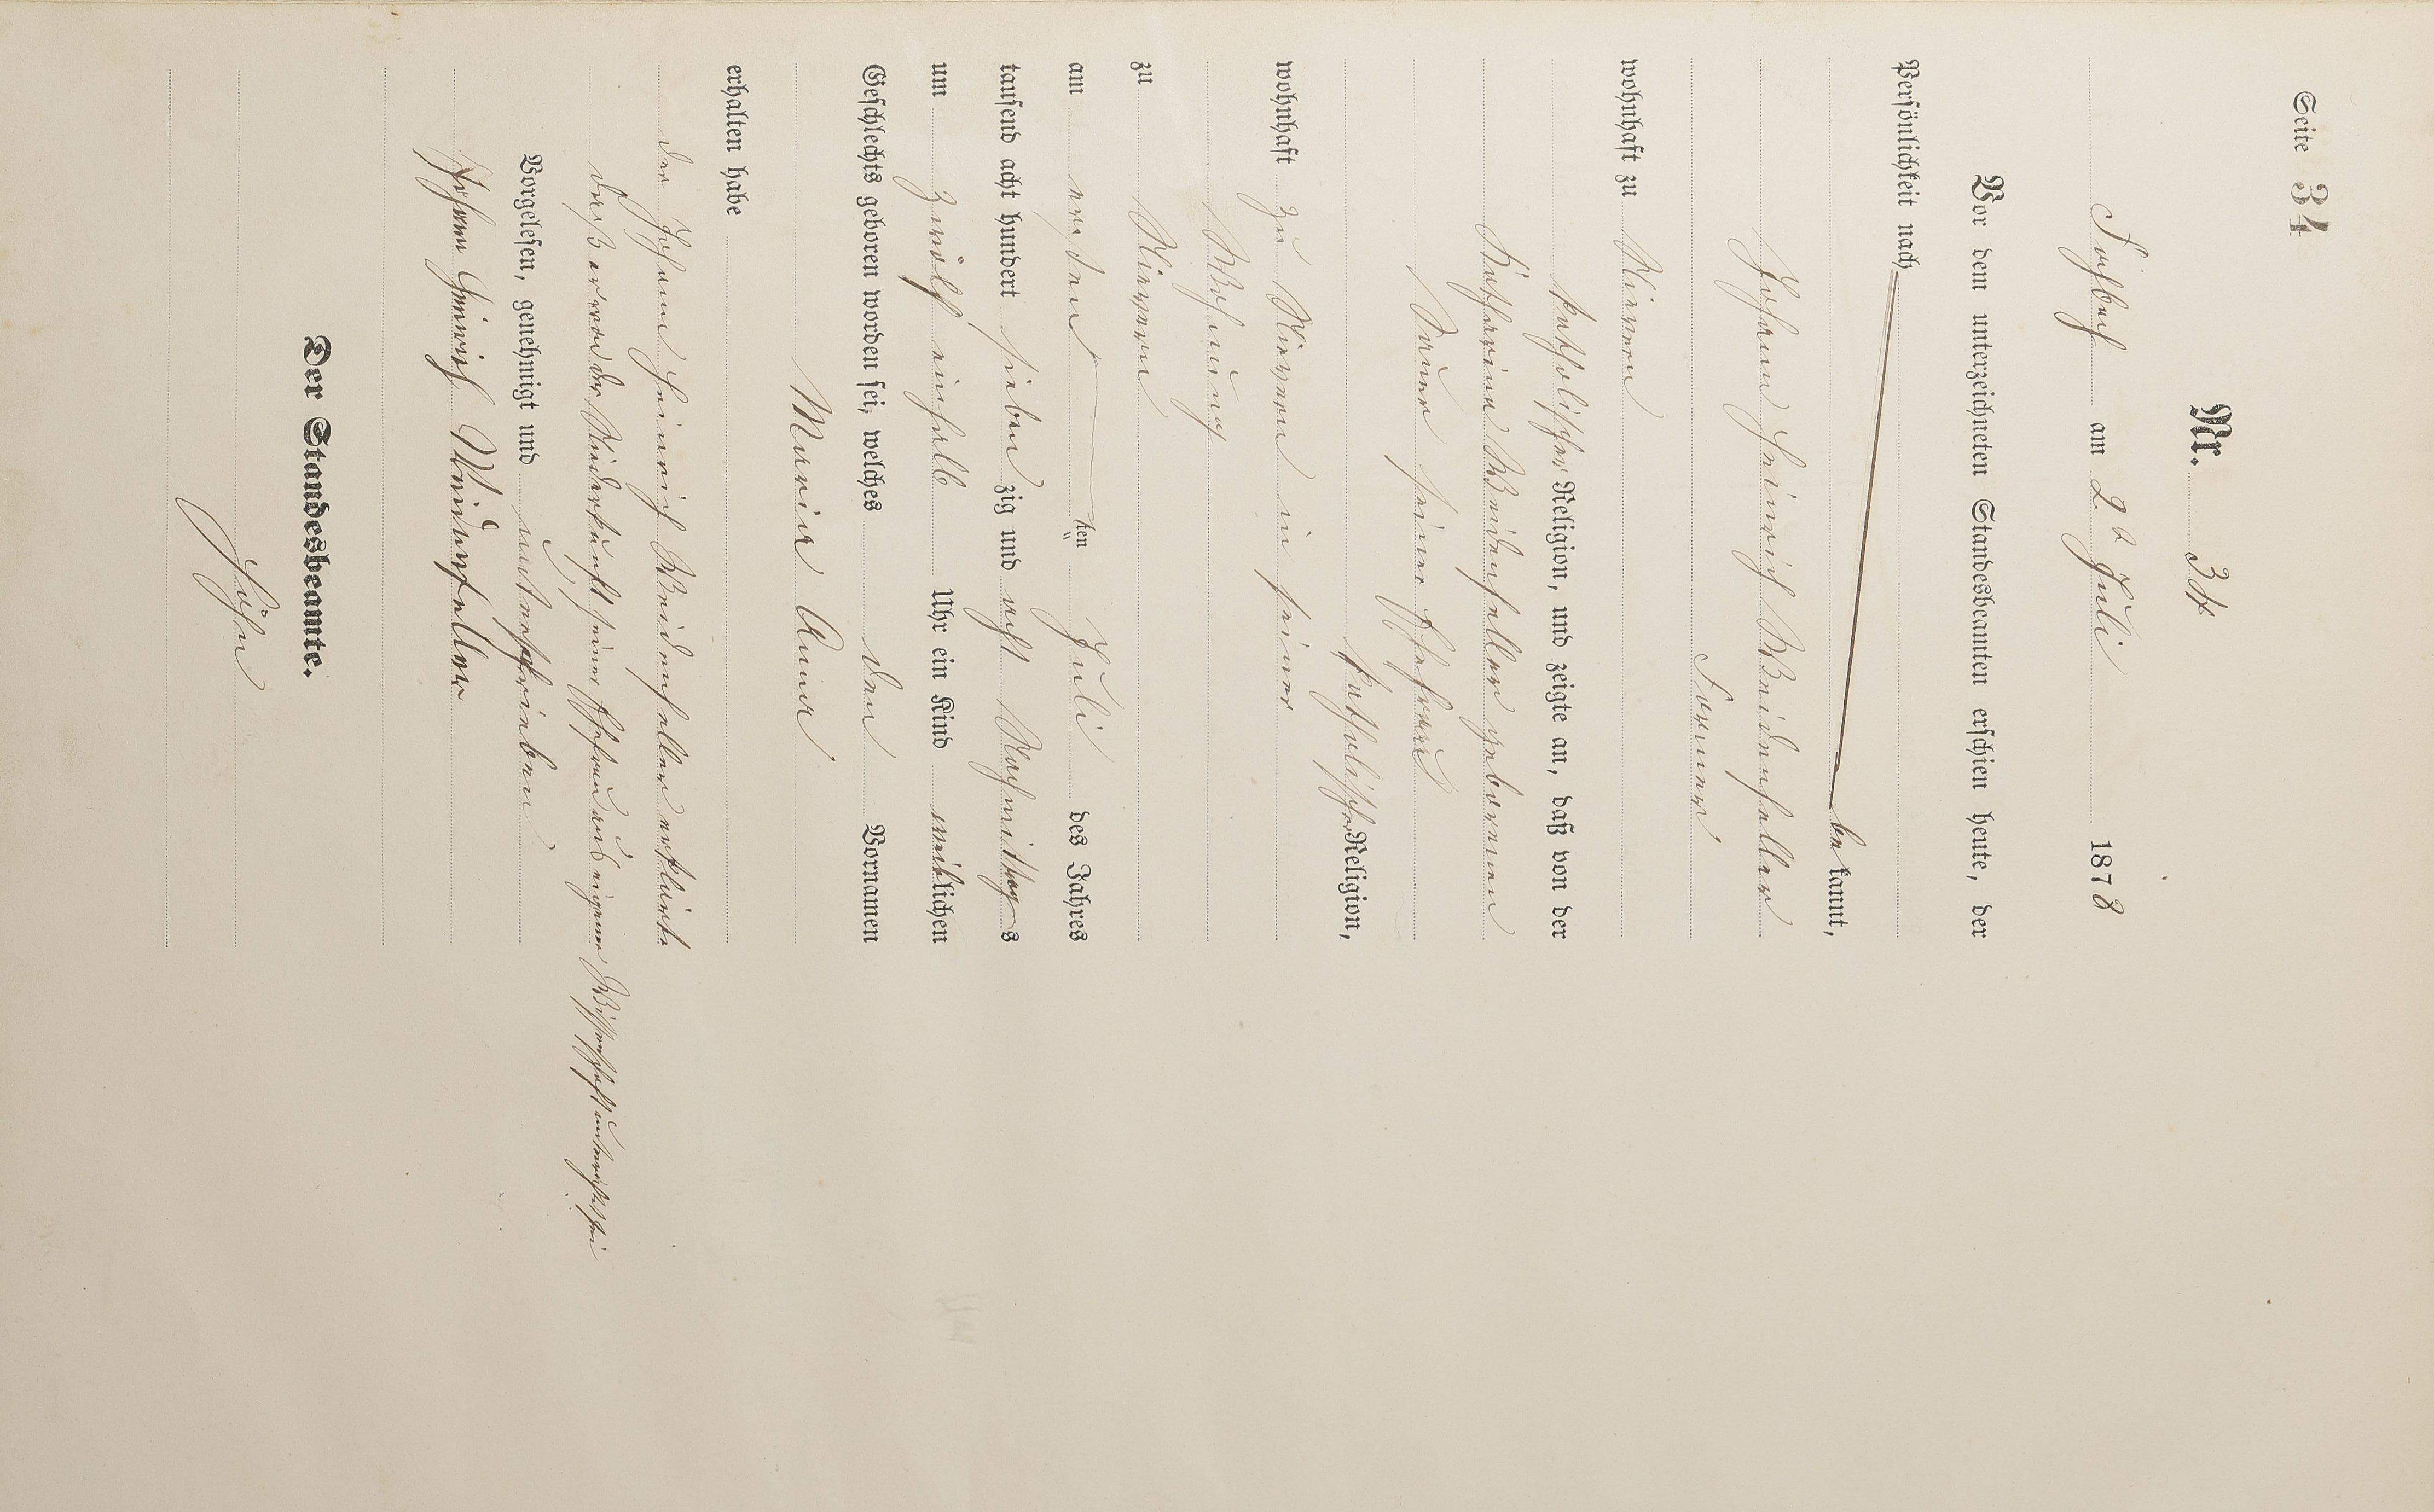 Seite 34
Nr. 34
Fischbach am 2ten Juli 1878
Vor dem unterzeichneten Standesbeamten erschien heute, der
Persönlichkeit nach
bekannt,
Johann Heinrich Weidenfeller
Former
wohnhaft zu Nievern
katholischer Religion, und zeigte an, daß von der
Katharina Weidenfeller geborenen
seiner Ehefrau
katholischer Religion,
wohnhaft zu Nievern in seiner
Wohnung
zu Nievern
am ersten ten Juli des Jahres
tausend acht hundert siebenzig und acht Nachmittags
um zwölf einhalb Uhr ein Kind weiblichen
Geschlechts geboren worden sei, welches den Vornamen
Maria Anna
erhalten habe
Der Johann Heinrich Weidenfeller erklärt,
daß er von der Niederkunft seiner Ehefrau aus eigener Wissenschaft unterrichtet sei
Vorgelesen, genehmigt und unterschrieben
Johann Heinrich Weidenfeller
Der Standesbeamte.